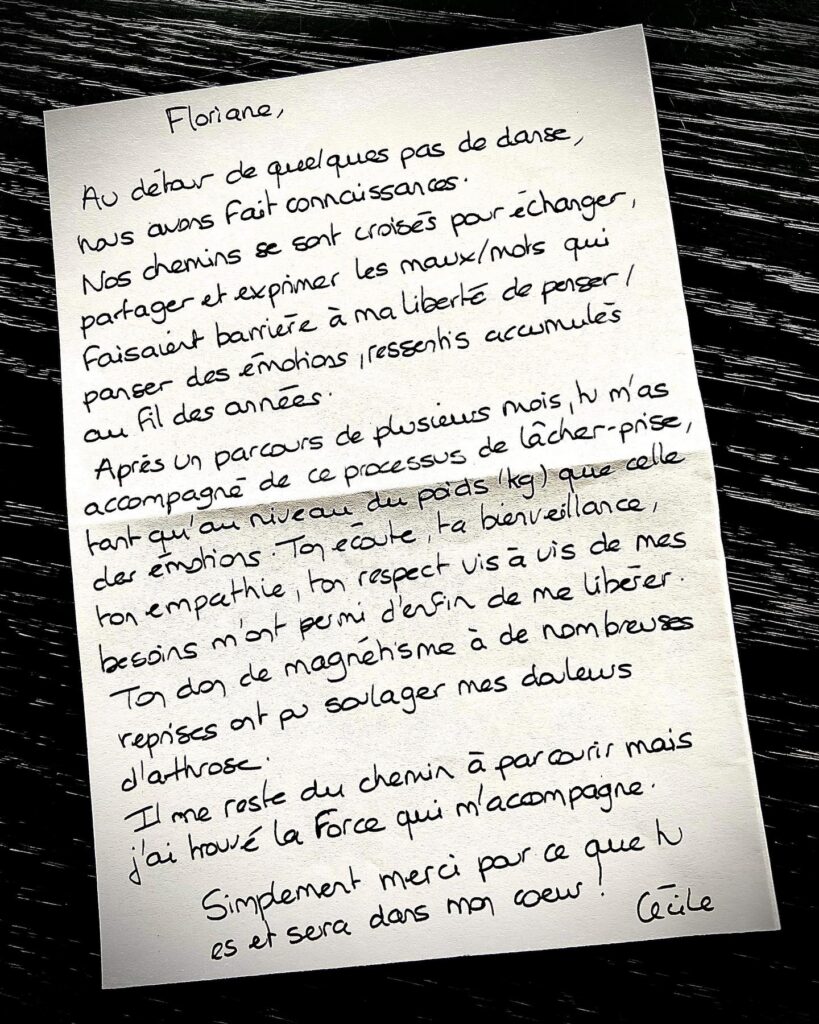 Floriane,
Au détour de quelques pas de danse,
nous avons fait connaissances.
Nos chemins se sont croisés pour échanger,
partager et exprimer les maux/mots qui
faisaient barrière à ma liberté de penser/
panser des émotions, ressentis accumulés
au fil des années.
Après un parcours de plusieurs mois, tu m'as
accompagné de ce processus de lâcher-prise,
tant qu'au niveau du poids (kg) que celle
des émotions. Ton écoute, ta bienveillance,
ton empathie, ton respect vis à vis de mes
besoins m'ont permi d'enfin de me libérer.
Ton don de magnétisme à de nombreuses
reprises ont pu soulager mes douleurs
d'arthrose.
Il me reste du chemin à parcourir mais
j'ai trouvé la Force qui m'accompagne.
Simplement merci pour ce que tu
es et sera dans mon coeur !
Cécile